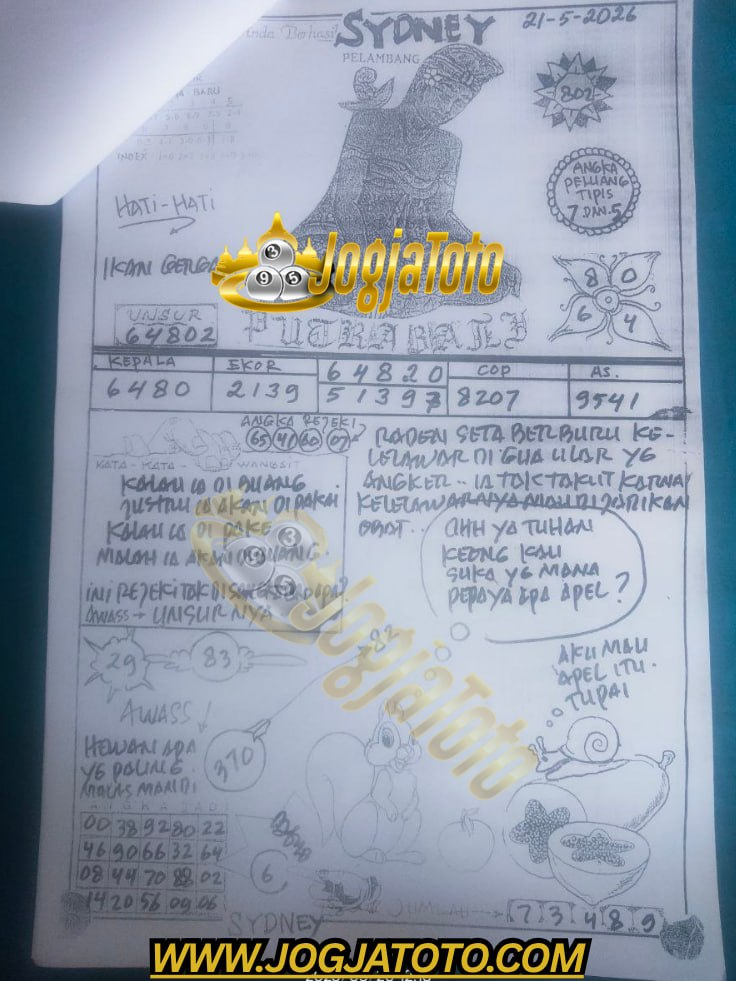 SYDNEY
21-5-2026
PELAMBANG
802
INDEX
HATI-HATI
ANGKA
PELUANG
TIPIS
7 DAN 5
IKAN
JogjaToto
3
9 5
8 0
6 4
UNSUR
64802
PUTRA BALI
KEPALA EKOR 64820 COP AS.
6480 2139 51397 8207 9541
ANGKA REJEKI
65 41 60 07
RADEN SETA BERBURU KE-
LELAWAR DI GUA ULAR YG
ANGKER -- IA TAK TAKUT KARNA
KELELAWARNYA MAU DI JADIKAN
OBAT..
KATA - KATA - WANGSIT
KALAU IA DI BUANG
JUSTRU IA AKAN DI PAKAI
KALAU IA DI PAKE
MALAH IA AKAN DI BUANG.
INI REJEKI TAK
AWASS → UNSURNYA
OHH YA TUHAN
KEONG KAU
SUKA YG MANA
PEPAYA APA APEL?
JogjaToto
3
9 5
29
83
782
AKU MAU
APEL ITU.
TUPAI
AWASS!
HEWAN APA
YG PALING
MALAS MANDI
370
ANGKA JADI
00 38 92 80 22
46 90 66 32 64
08 44 70 88 02
14 20 56 09 06
6
SYDNEY
JUMLAH
7 3 4 8 9
WWW.JOGJATOTO.COM